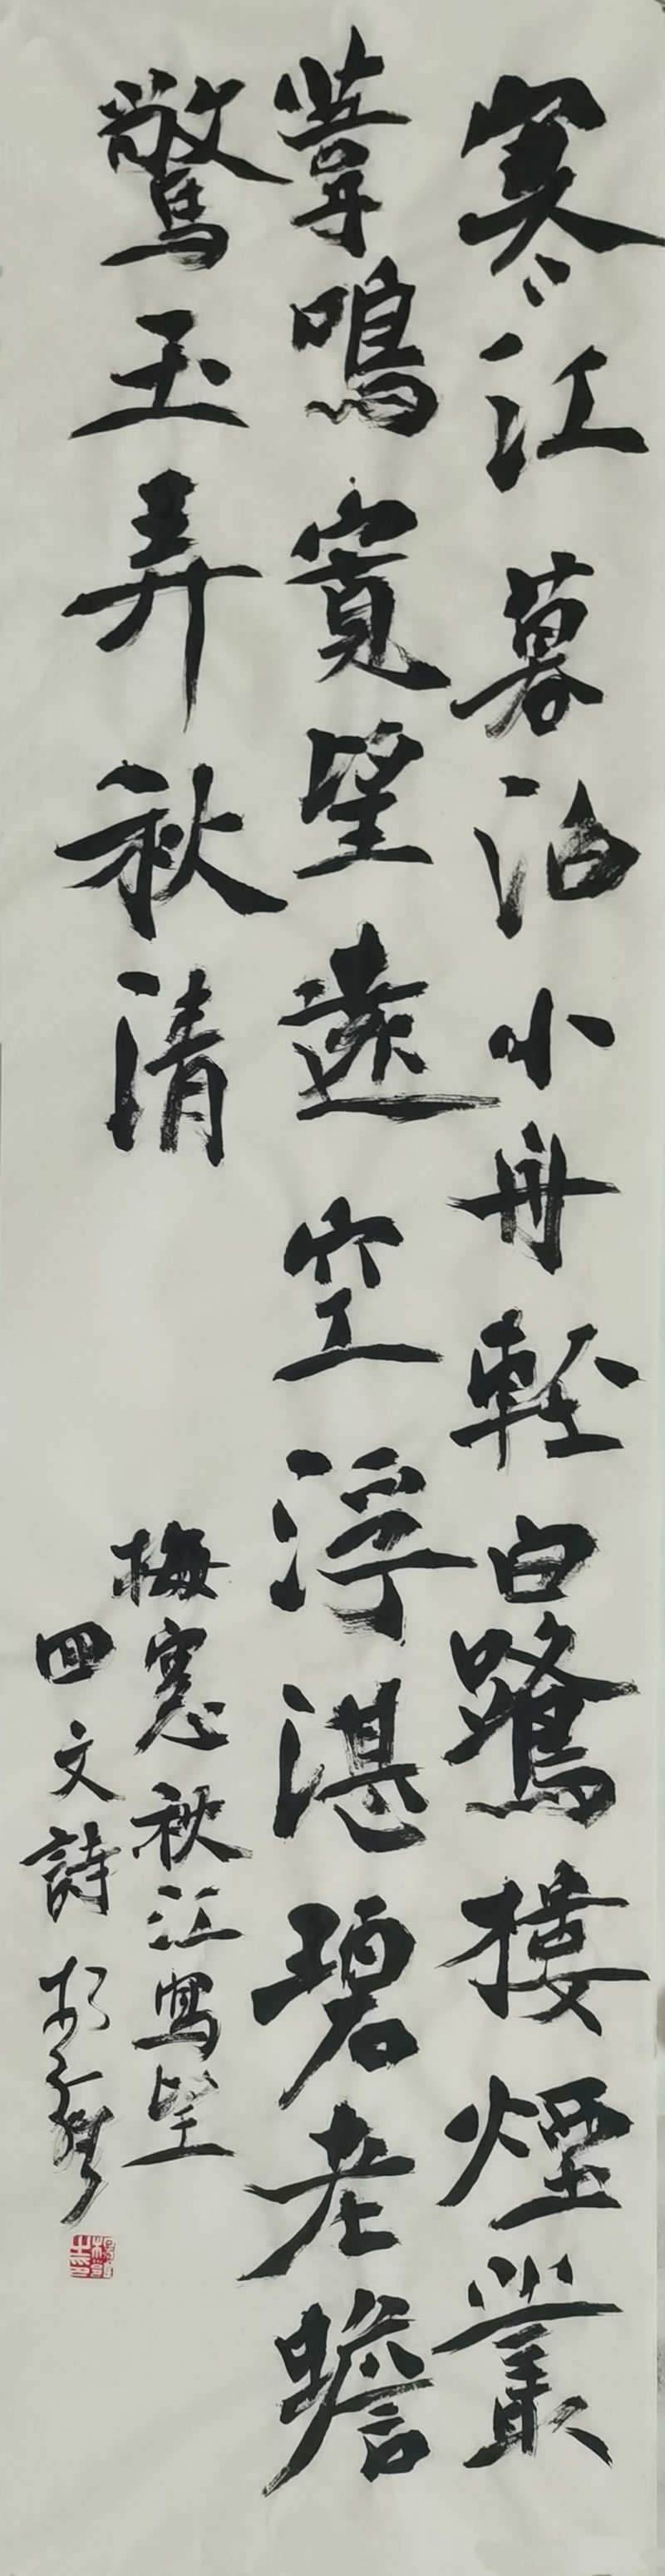 寒江暮泊小舟輕白鷺棲煙叢
葦鳴寬望遠空浮湛碧老蟾
驚玉弄秋清
梅窓秋江寫望
四文詩